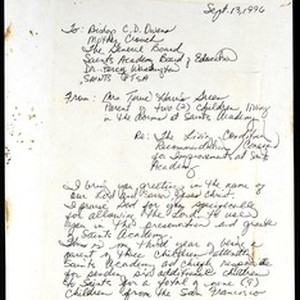 Sept. 13, 1996
To: Bishop C.D. Owens
Mother Crouch
The General Board
Saints Academy Board of Education
Dr. Washington
SAINTS PTSA
From: Mrs. Green
Parent of two (2) children living
in the dorms at Saints Academy
Re: The Living Condition
Recommendation/Concerns
for Improvement at Saints
Academy
I bring you greetings in the name of
our Lord and Savior Jesus Christ.
I praise God for you
for allowing the Lord to use
you in the preservation and growth
of Saints Academy.
This is my third year of being a
parent of three children attending
Saints Academy and
for sending six additional children
to Saints for a total of nine (9)
children from the San Francisco